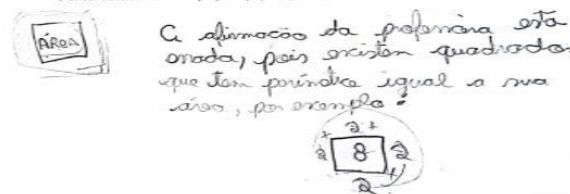 ÁREA
A afirmação da professora está
errada, pois existem quadrados
que tem perímetro igual a sua
área, por exemplo:
2 +
+ 2 8 2
2 +